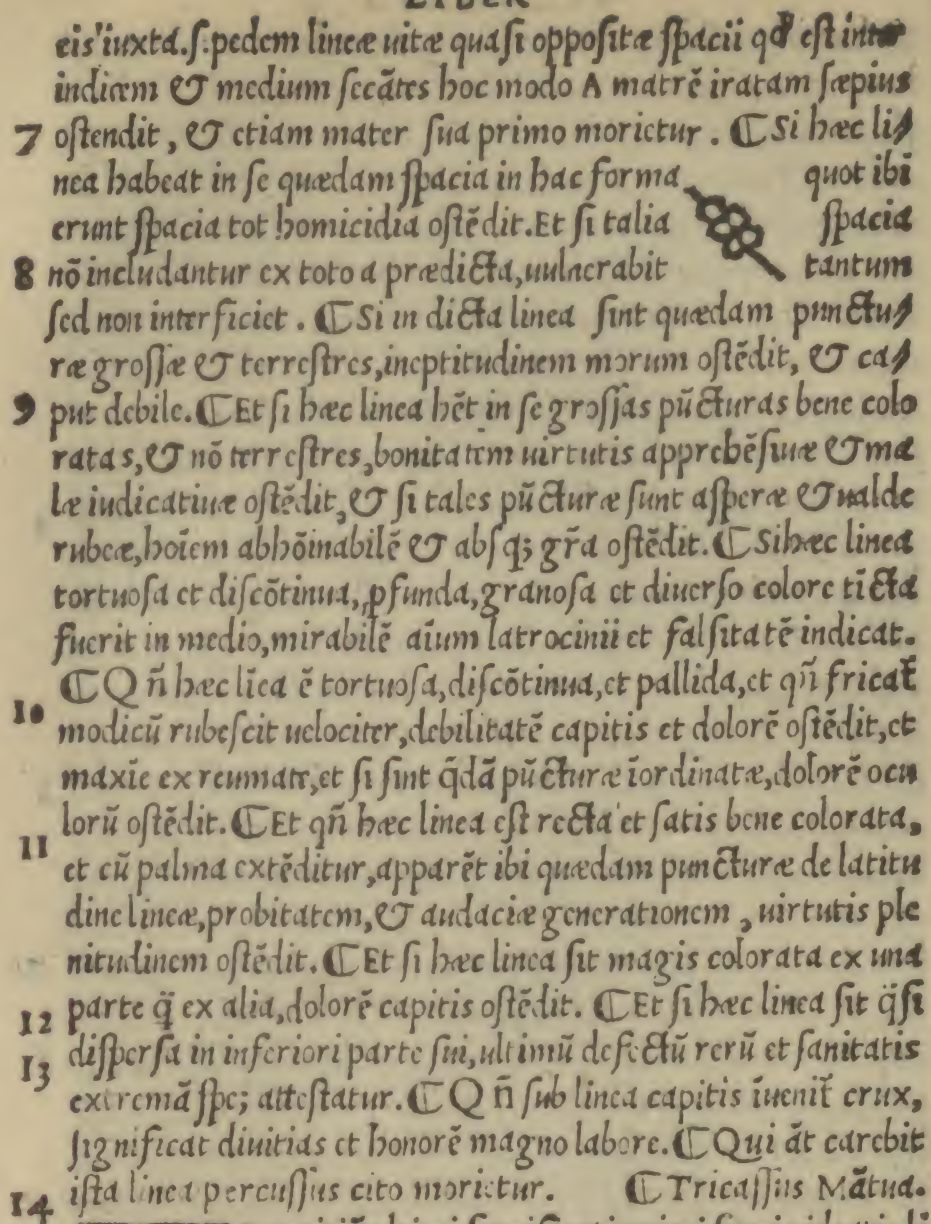 LIBER
eis iuxta.s.pedem lineæ uitæ quasi oppositæ spacii qđ est inter
indicem & medium secãtes hoc modo A matrẽ iratam sæpius
7 ostendit, & etiam mater sua primo morietur. ⁋Si hæc li⸗
nea habeat in se quædam spacia in hac forma quot ibi
erunt spacia tot homicidia ostẽdit. Et si talia spacia
8 nõ includantur ex toto a prædicta, uulnerabit tantum
sed non interficiet. ⁋Si in dicta linea sint quædam punctu⸗
ræ grossæ & terrestres, ineptitudinem morum ostẽdit, & ca⸗
9 put debile. ⁋Et si hæc linea hẽt in se grossas pũcturas bene colo
ratas, & nõ terrestres, bonitatem uirtutis apprehẽsiuæ & ma
læ iudicatiuæ ostẽdit, & si tales pũcturæ sunt asperæ & ualde
rubeæ, hoĩem abhõinabilẽ & absq; gr̃a ostẽdit. ⁋Si hæc linea
tortuosa et discõtinua, ꝓfunda, granosa et diuerso colore tĩcta
fuerit in medio, mirabilẽ aĩum latrocinii et falsitatẽ indicat.
⁋Qñ hæc lĩea ẽ tortuosa, discõtinua, et pallida, et qñ fricat̃
10 modicũ rubescit uelociter, debilitatẽ capitis et dolorẽ ostẽdit, et
maxĩe ex reumate, et si sint q̃dã pũcturæ ĩordinatæ, dolorẽ ocu
lorũ ostẽdit. ⁋Et qñ hæc linea est recta et satis bene colorata,
11 et cũ palma extẽditur, apparẽt ibi quædam puncturæ de latitu
dine lineæ, probitatem, & audaciæ generationem, uirtutis ple
nitudinem ostẽdit. ⁋Et si hæc linea sit magis colorata ex una
12 parte q̃ ex alia, dolorẽ capitis ostẽdit. ⁋Et si hæc linea sit q̃si
13 dispersa in inferiori parte sui, ultimũ defectũ rerũ et sanitatis
extremã spe; attestatur. ⁋Qñ sub linea capitis ĩuenit̃ crux,
significat diuitias et honorẽ magno labore. ⁋Qui ãt carebit
14 ista linea percussius cito morietur. ⁋Tricassius Mãtua.